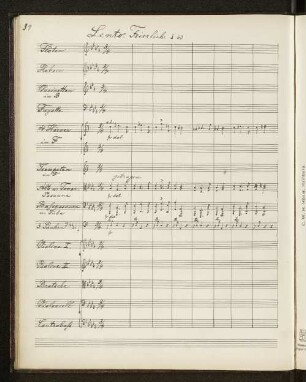 37
Lento. Feierlich.
Flöten
Oboen
Clarinetten
in B
Fagotte
4 Hörner
in F
Trompeten
Alt u. Tenor
Posaune
Bassposaune
3 Pauken
Violine I
Violine II
Bratsche
Violoncell
Contrabass